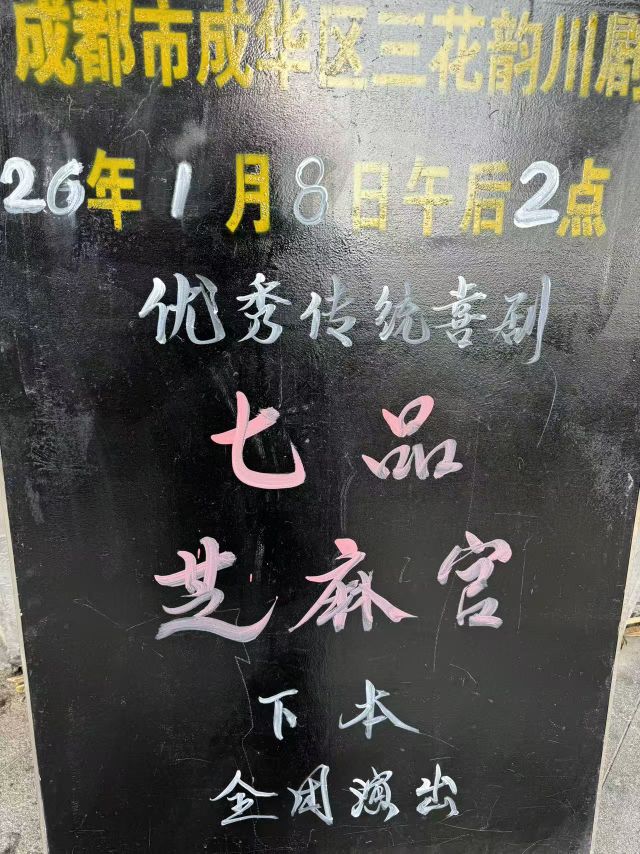 成都市成华区三花韵川剧
26年1月8日午后2点
优秀传统喜剧
七品
芝麻官
下本
全团演出